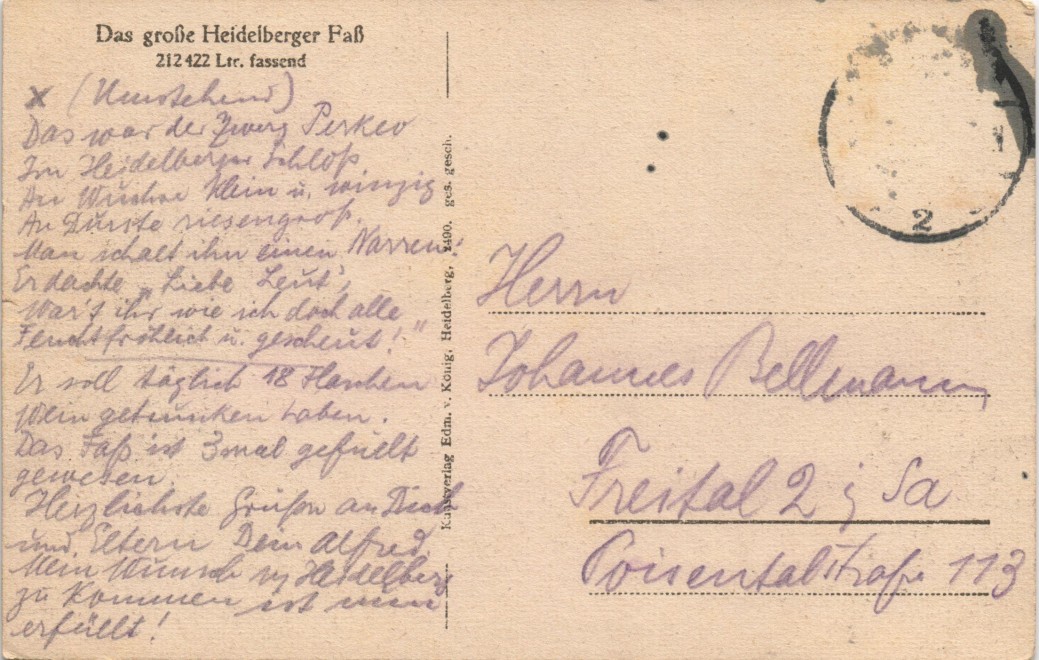 Das große Heidelberger Faß
212422 Ltr. fassend
x (Umstehend)
Das war der Zwerg Perkeo
Im Heidelberger Schloß
An Wuchse klein u. winzig
An Durste riesengroß.
Man schalt ihn einen Narren!
Er dachte „Liebe Leut',
Wär't ihr wie ich doch alle
Feuchtfröhlich u. gescheut!"
Er soll täglich 18 Flaschen
Wein getrunken haben.
Das Faß ist 3mal gefüllt
gewesen.
Herzlichste Grüße an Dich
und Eltern Dein Alfred
Mein Wunsch n/ Heidelberg
zu kommen ist nun
erfüllt!
Kunstverlag Edm. v. König, Heidelberg, 2490. ges. gesch.
2
Herrn
Johannes Bellmann
Freital 2 i Sa
Poisentalstraße 113